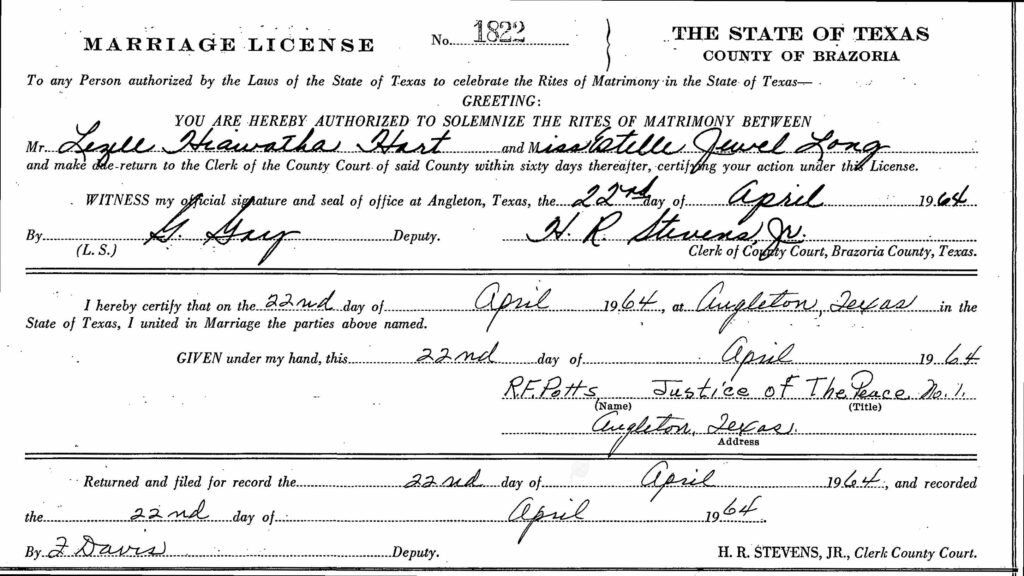 MARRIAGE LICENSE No. 1822 THE STATE OF TEXAS
COUNTY OF BRAZORIA
To any Person authorized by the Laws of the State of Texas to celebrate the Rites of Matrimony in the State of Texas—
GREETING:
YOU ARE HEREBY AUTHORIZED TO SOLEMNIZE THE RITES OF MATRIMONY BETWEEN
Mr. Hiawatha Hart and Miss Estelle Jewel Long
and make due return to the Clerk of the County Court of said County within sixty days thereafter, certifying your action under this License.
WITNESS my official signature and seal of office at Angleton, Texas, the 22nd day of April 1964
By G. Gay Deputy. H. R. Stevens, Jr.
(L. S.) Clerk of County Court, Brazoria County, Texas.
I hereby certify that on the 22nd day of April 1964, at Angleton, Texas in the
State of Texas, I united in Marriage the parties above named.
GIVEN under my hand, this 22nd day of April 1964
R.F. Potts Justice of The Peace No. 1.
(Name) (Title)
Angleton, Texas.
Address
Returned and filed for record the 22nd day of April 1964, and recorded
the 22nd day of April 1964.
By Davis Deputy. H. R. STEVENS, JR., Clerk County Court.